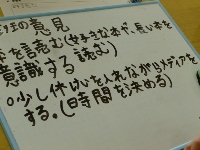 の意見
本を読む(好きな本が、長い本を
意識する 読む)
○少し休けいを入れながらメディアを
する。(時間を決める)